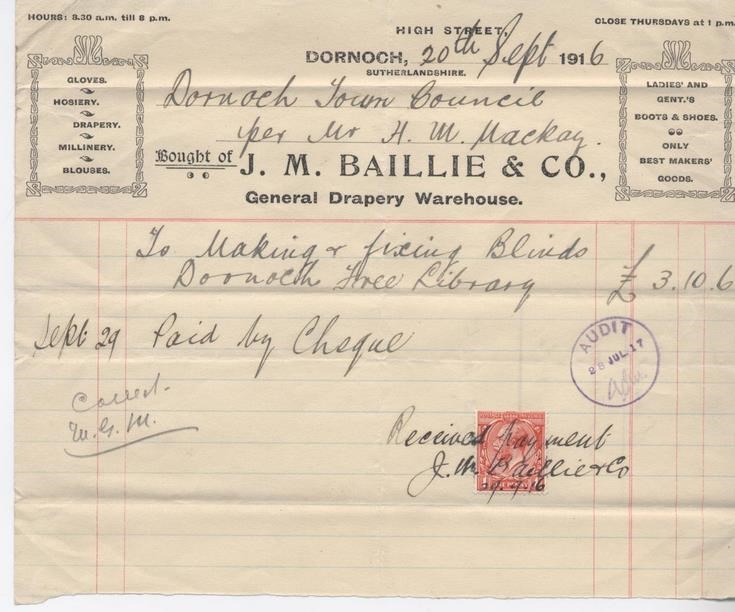 HOURS: 8.30 a.m. till 8 p.m.
CLOSE THURSDAYS at 1 p.m.
HIGH STREET,
DORNOCH, 20th Sept 1916
SUTHERLANDSHIRE.
GLOVES.
HOSIERY.
DRAPERY.
MILLINERY.
BLOUSES.
LADIES' AND
GENT.'S
BOOTS & SHOES.
ONLY
BEST MAKERS'
GOODS.
Dornoch Town Council
per Mr H. M. Mackay.
Bought of J. M. BAILLIE & CO.,
General Drapery Warehouse.
To Making & fixing Blinds
Dornoch Free Library £ 3.10.6
Sept 29 Paid by Cheque
AUDIT
28 JUL.17
Correct.
Received payment
J. M. Baillie & Co
29.9.16